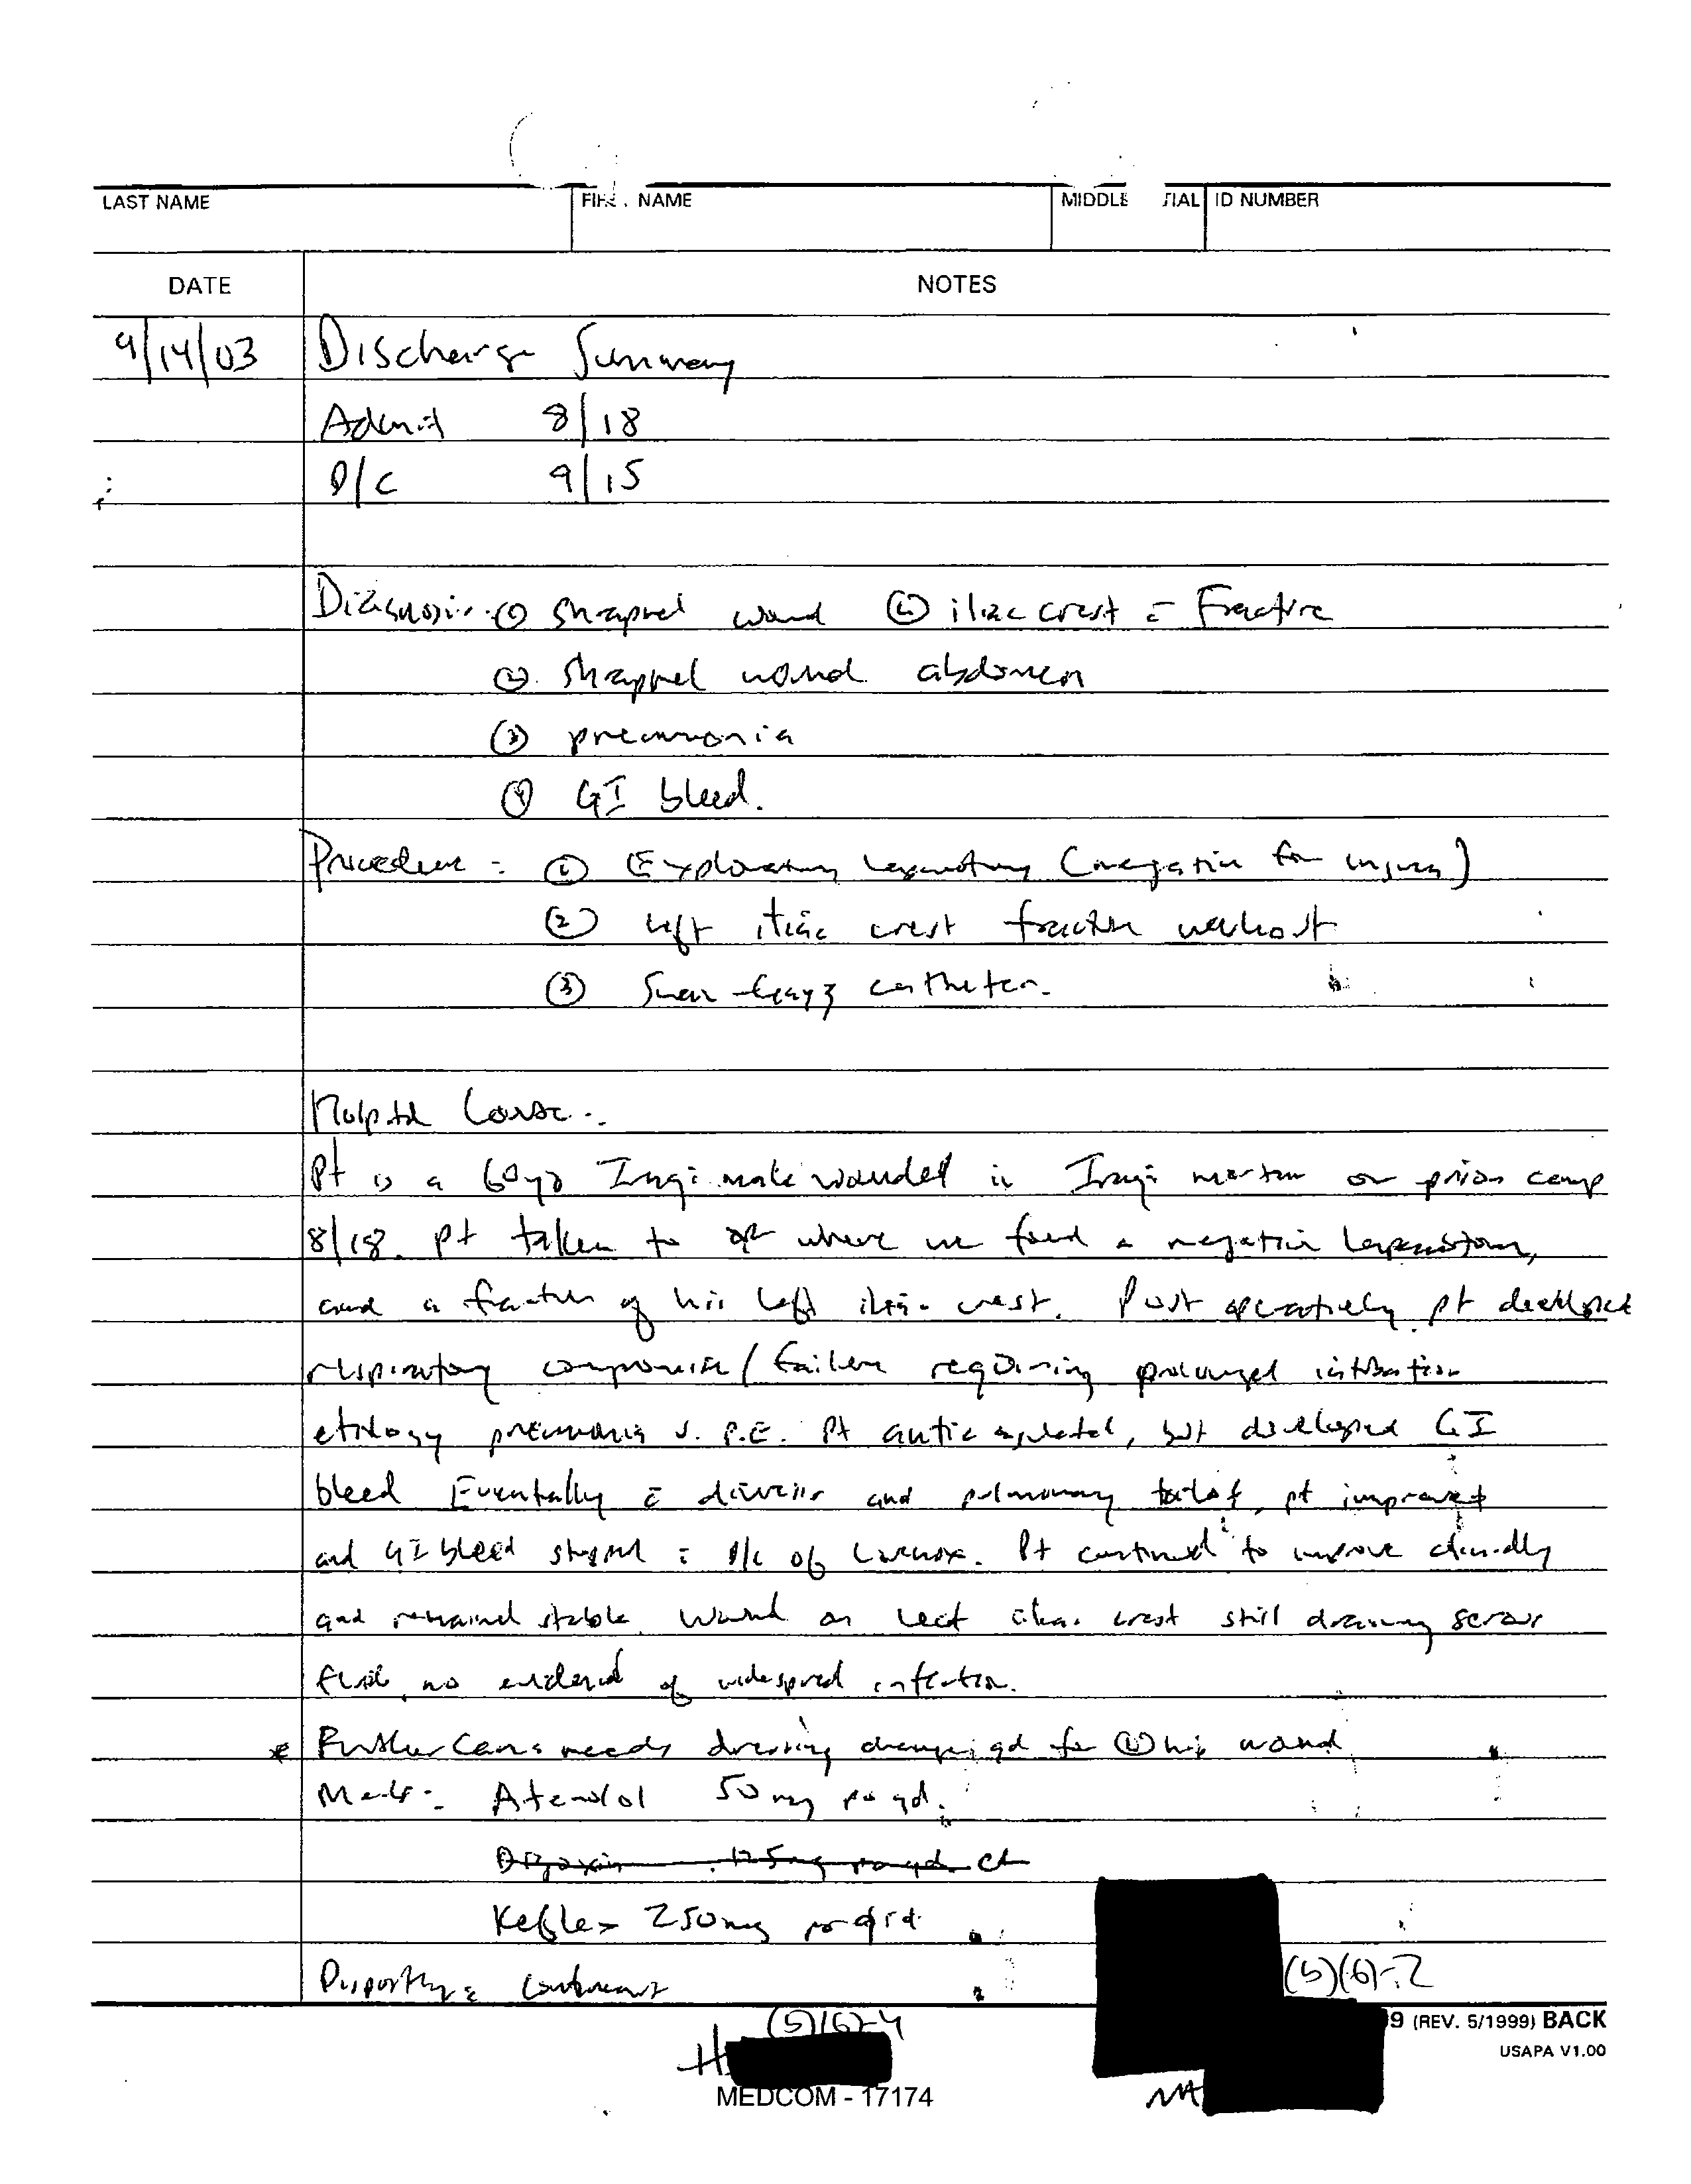 LAST NAME FIRST NAME MIDDLE INITIAL ID NUMBER
DATE NOTES
9/14/03 Discharge Summary
Admit 8/18
D/C 9/15
Diagnosis: ① Shrapnel wound Ⓛ iliac crest c̄ Fracture
② Shrapnel wound abdomen
③ pneumonia
④ GI bleed.
Procedure: ① Exploratory laparotomy (negative for injury)
② left iliac crest fracture washout
③ Swan-Ganz catheter.
Hospital Course:
Pt is a 60 yo Iraqi male wounded in Iraqi mortar on prison camp
8/18. Pt taken to OR where we found a negative laparotomy,
and a fracture of his left iliac crest. Post operatively pt developed
respiratory compromise/failure requiring prolonged intubation
etiology pneumonia v. P.E. Pt anticoagulated, but developed GI
bleed Eventually c̄ diuresis and pulmonary toilet, pt improved
and GI bleed stopped c̄ D/C of Lovenox. Pt continued to improve clinically
and remained stable. Wound on left iliac crest still draining serous
fluid, no evidence of widespread infection.
* Further Care: needs dressing change qd for Ⓛ hip wound
Meds: Atenolol 50 mg po qd.
Digoxin .125mg po qd
Keflex 250mg po qid
Disposition:
(b)(6)-2
(b)(6)-4
9 (REV. 5/1999) BACK
USAPA V1.00
MEDCOM - 17174